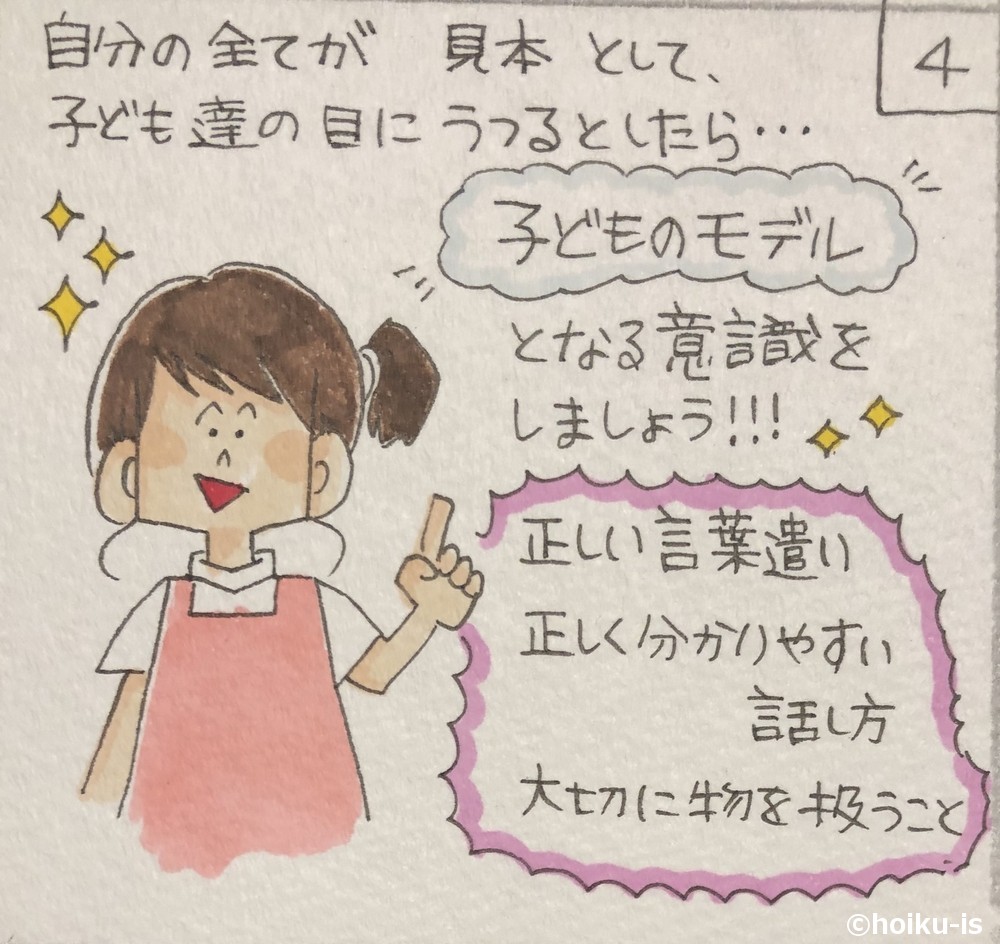 4
自分の全てが 見本 として、
子ども達の目に うつるとしたら…
子どものモデル
となる意識を
しましょう!!!
正しい言葉遣い
正しく分かりやすい
話し方
大切に物を扱うこと
©hoiku-is